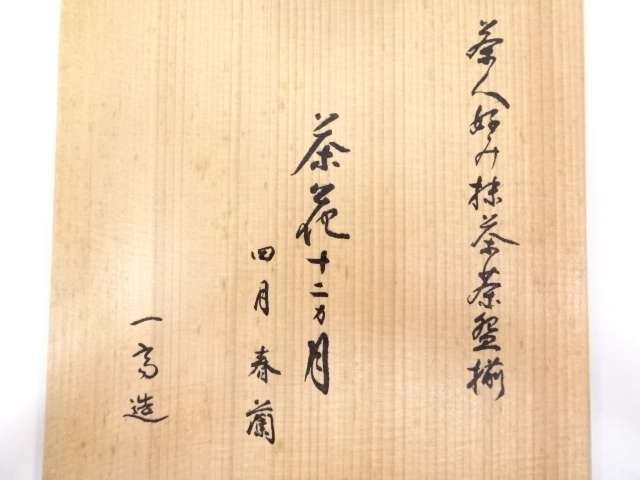 茶人好み抹茶茶盌揃
茶花十二カ月
四月 春蘭
一高造